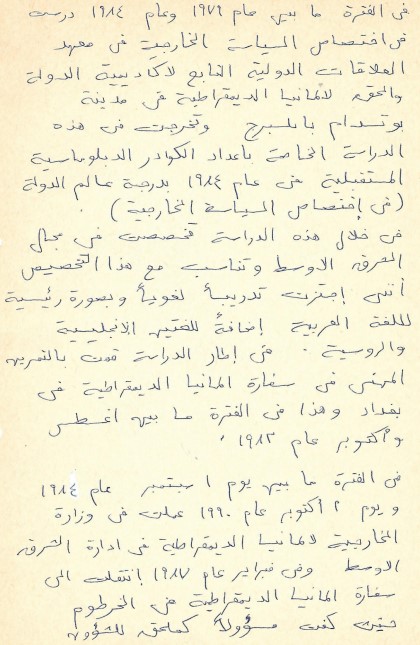 فى الفترة ما بين عام ١٩٧٩ وعام ١٩٨٤ درست
فى اختصاص السياسة الخارجية فى معهد
العلاقات الدولية التابع لأكاديمية الدولة
والحقوق لألمانيا الديمقراطية فى مدينة
بوتسدام بابلسبرج وتخرجت فى هذه
الدراسة الخاصة باعداد الكوادر الدبلوماسية
المستقبلية فى عام ١٩٨٤ بدرجة عالم الدولة
(فى إختصاص السياسة الخارجية).
فى خلال هذه الدراسة تخصصت فى مجال
الشرق الاوسط وتناسب مع هذا التخصيص
أننى إجتزت تدريباً لغوياً وبصورة رئيسية
للغة العربية إضافةً للغتين الإنجليسية
والروسية. فى إطار الدراسة قمت بالتمرين
المهنى فى سفارة المانيا الديمقراطية فى
بغداد وهذا فى الفترة ما بين اغسطس
وأكتوبر عام ١٩٨٢.
فى الفترة ما بين يوم ١ سبتمبر عام ١٩٨٤
و يوم ٢ أكتوبر عام ١٩٩٠ عملت فى وزارة
الخارجية لالمانيا الديمقراطية فى ادارة الشرق
الاوسط وفى فبراير عام ١٩٨٧ إنتقلت الى
سفارة المانيا الديمقراطية فى الخرطوم
حيث كنت مسؤولاً كملحق للشؤون